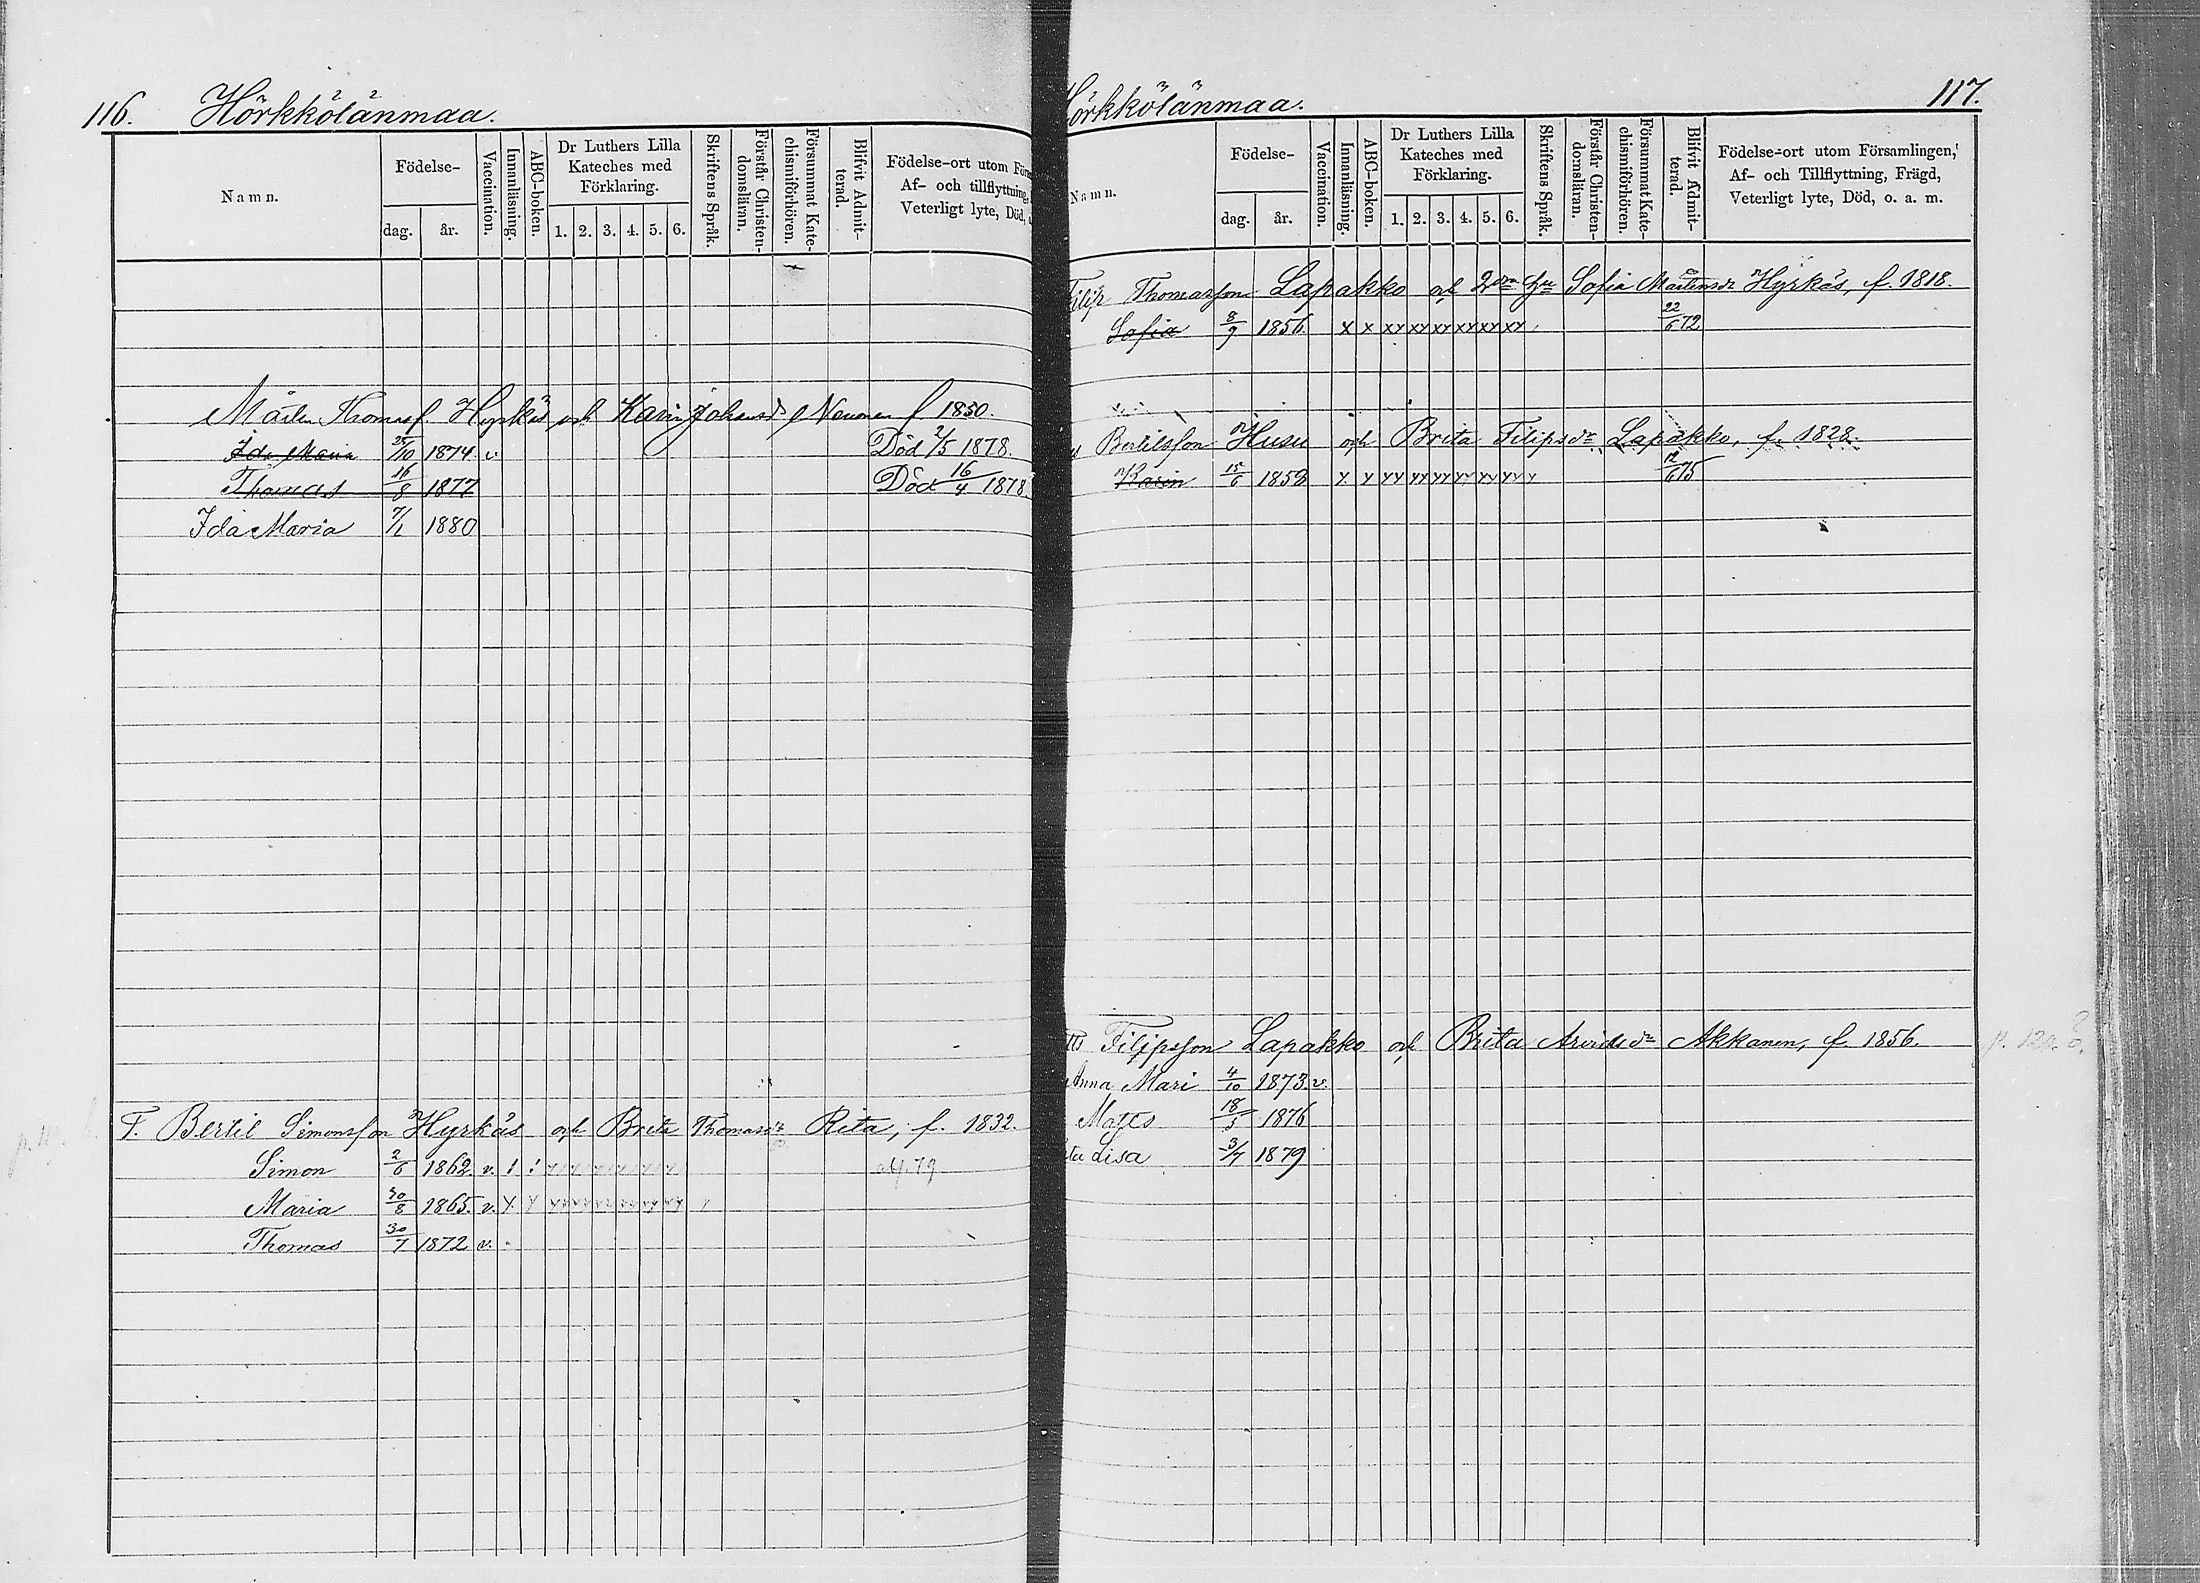 116. Hörkkölänmaa.
Namn.
Födelse-
dag. år.
Vaccination.
Innanläsning.
ABC-boken.
Dr Luthers Lilla
Kateches med
Förklaring.
1. 2. 3. 4. 5. 6.
Skriftens Språk.
Förstår Christen-
domsläran.
Försummat Kate-
chismiförhören.
Blifvit Admit-
terad.
Födelse-ort utom Förs
Af- och tillflyttning,
Veterligt lyte, Död,
Mårten Thomasf. Hyrkäs och Karin Johansd. Nauonen f 1850.
Ida Maria 25/10 1874 v. Död 2/5 1878.
Thomas 16/8 1877 Död 16/4 1878
Ida Maria 7/1 1880
T. Bertil Simonsson Hyrkäs och Brita Thomasdr Rita, f. 1832.
Simon 2/6 1862 v.
Maria 30/8 1865. v. x x
Thomas 30/7 1872 v.
örkkölänmaa. 117.
Namn.
Födelse-
dag. år.
Vaccination.
Innanläsning.
ABC-boken.
Dr Luthers Lilla
Kateches med
Förklaring.
1. 2. 3. 4. 5. 6.
Skriftens Språk.
Förstår Christen-
domsläran.
Försummat Kate-
chismiförhören.
Blifvit Admit-
terad.
Födelse-ort utom Församlingen,
Af- och Tillflyttning, Frägd,
Veterligt lyte, Död, o. a. m.
Filip Thomasson Lapakko och 2dra Hu Sofia Mårtensdr Hyrkäs, f. 1818.
Sofia 8/9 1856 x x xx xx xx xx xx xx 22/6 72
Bertilsson Husu och Brita Filipsdr Lapakko, f. 1828.
Karin 15/6 1859 x x xx xx xx xx xx xx x 12/6 75
Filipsson Lapakko och Brita Arvidsdr Akkanen, f. 1856.
Anna Mari 4/10 1873. v.
Matts 18/3 1876
Lisa 3/7 1879